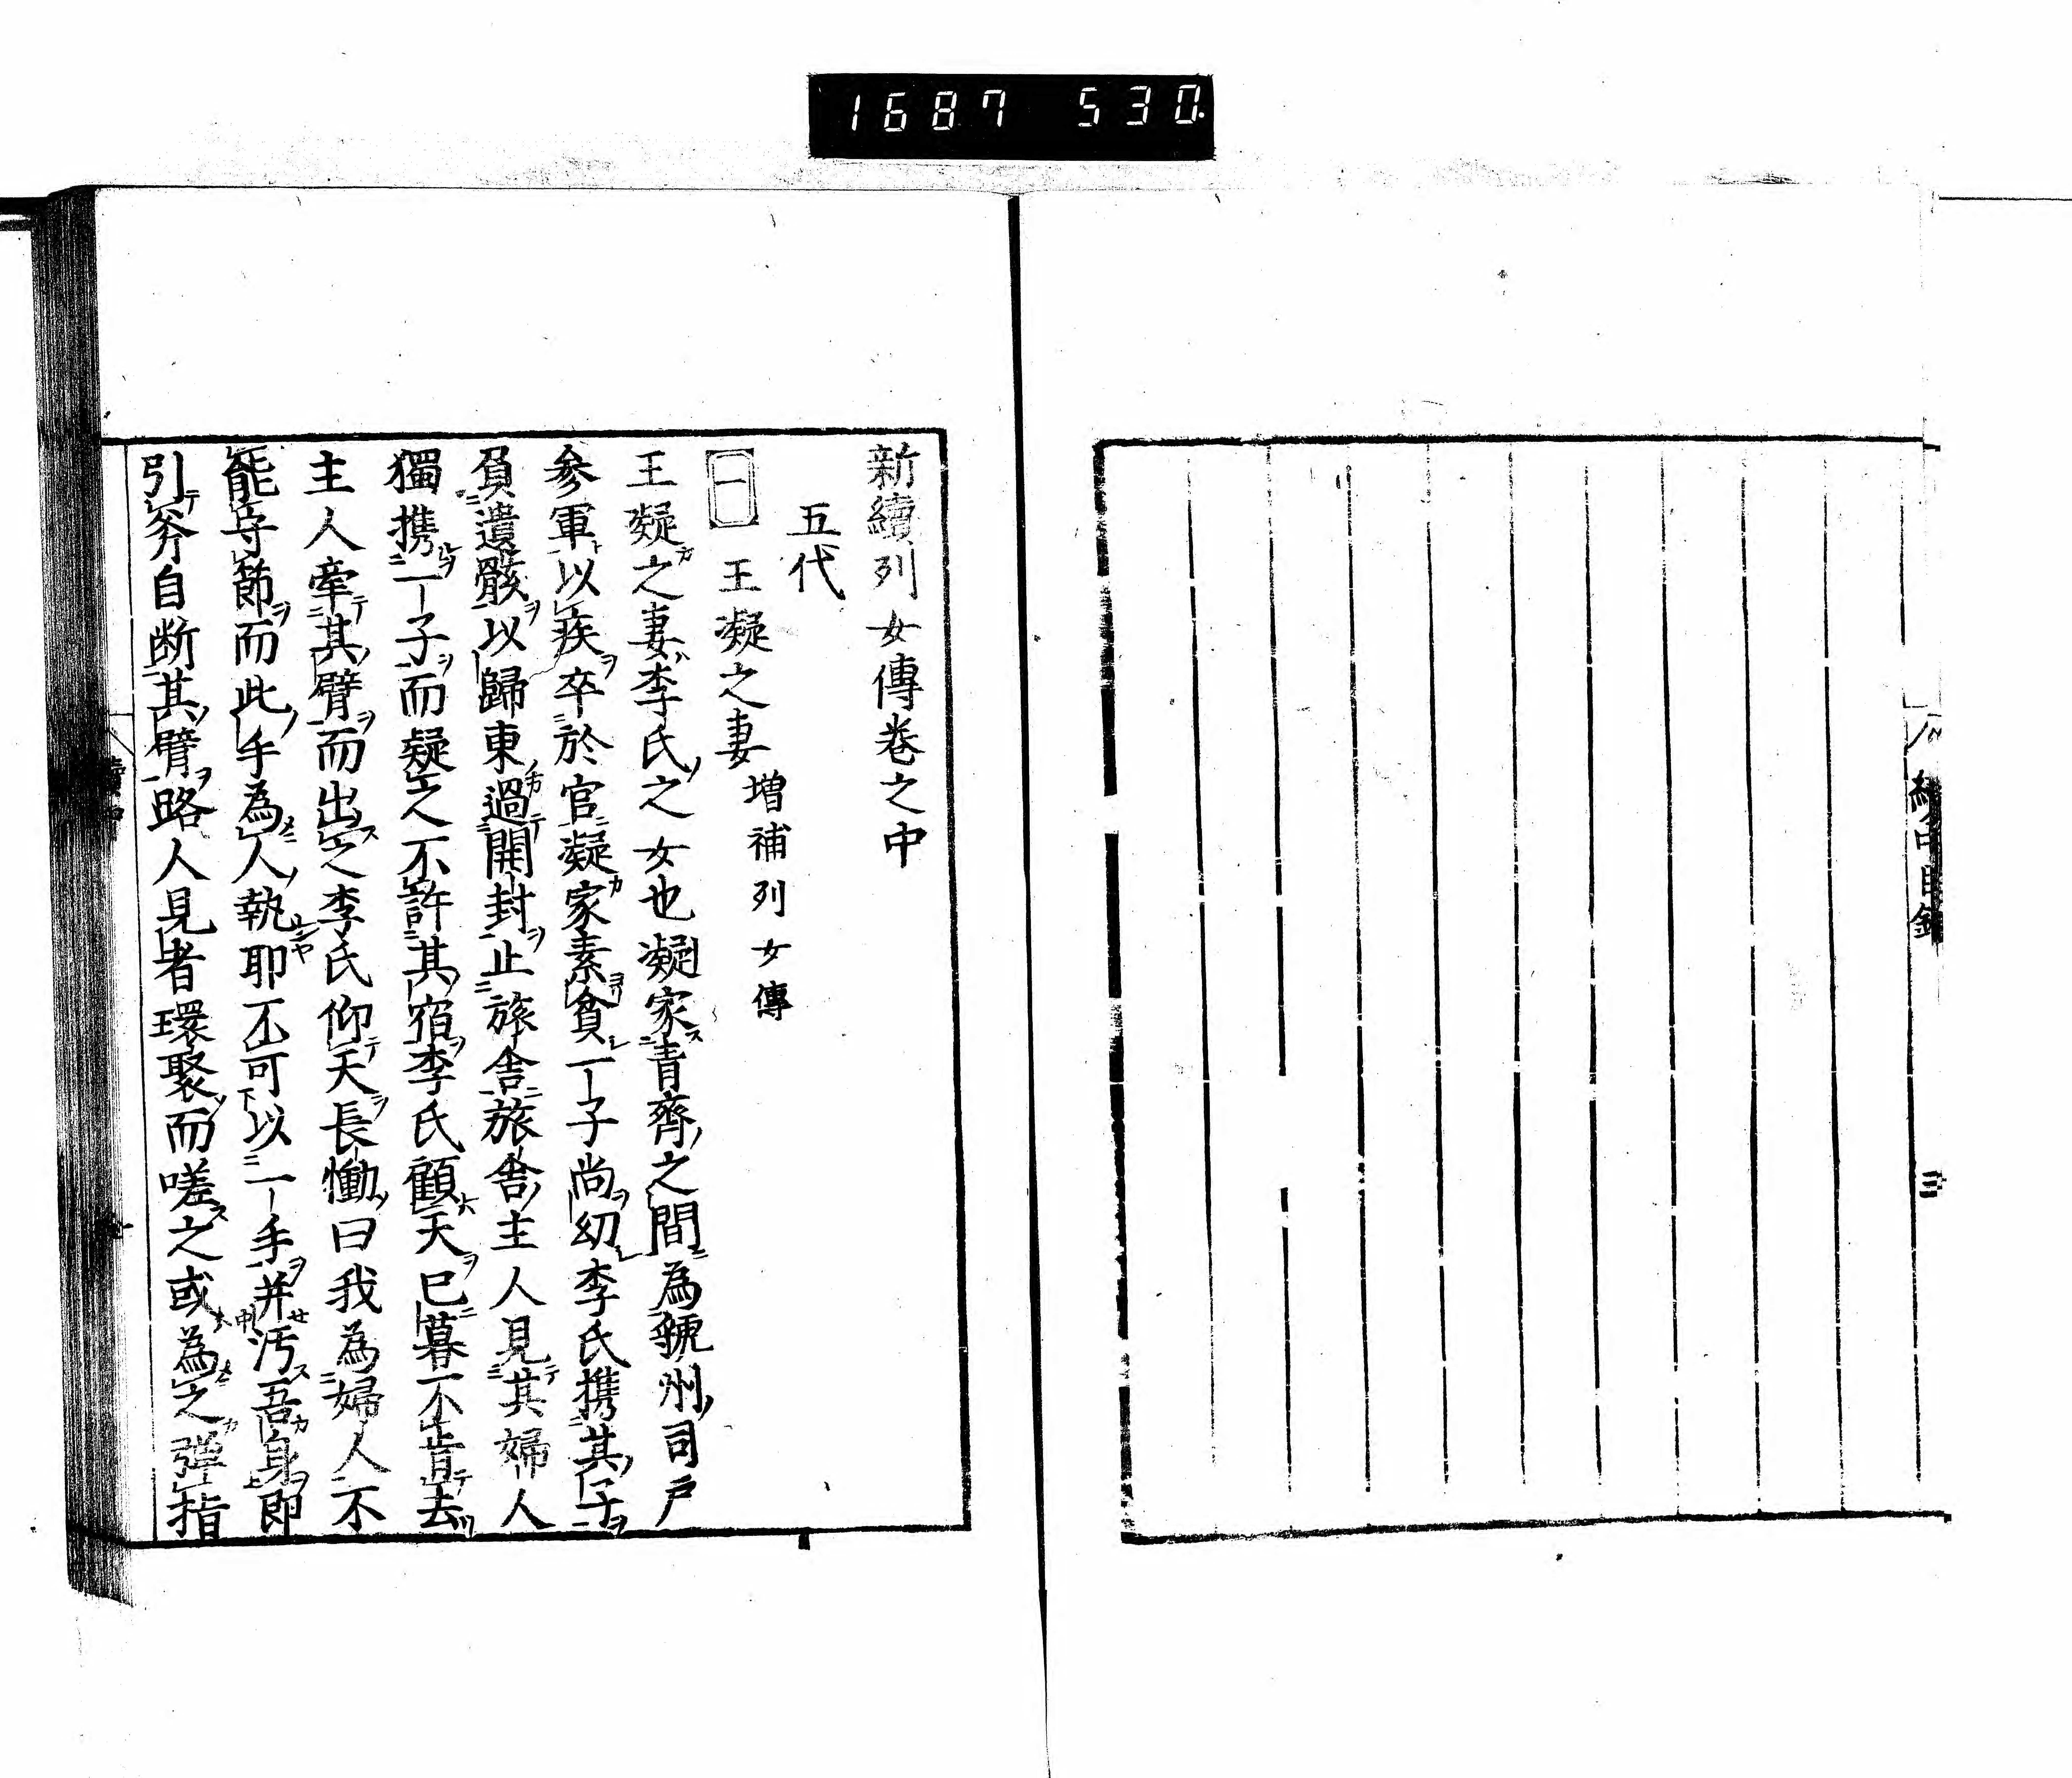 1687 530
新續列女傳卷之中
五代
一 王凝之妻 增補列女傳
王凝之妻李氏之女也凝家青齊之間為虢州司戶
參軍以疾卒於官凝家素貧一子尚幼李氏携其子
負遺骸以歸東過開封止旅舍旅舍主人見其婦人
獨携一子而疑之不許其宿李氏顧天已暮不肯去
主人牽其臂而出之李氏仰天長慟曰我為婦人不
能守節而此手為人執耶不可以一手并汚吾身即
引斧自断其臂路人見者環聚而嗟之或為之彈指